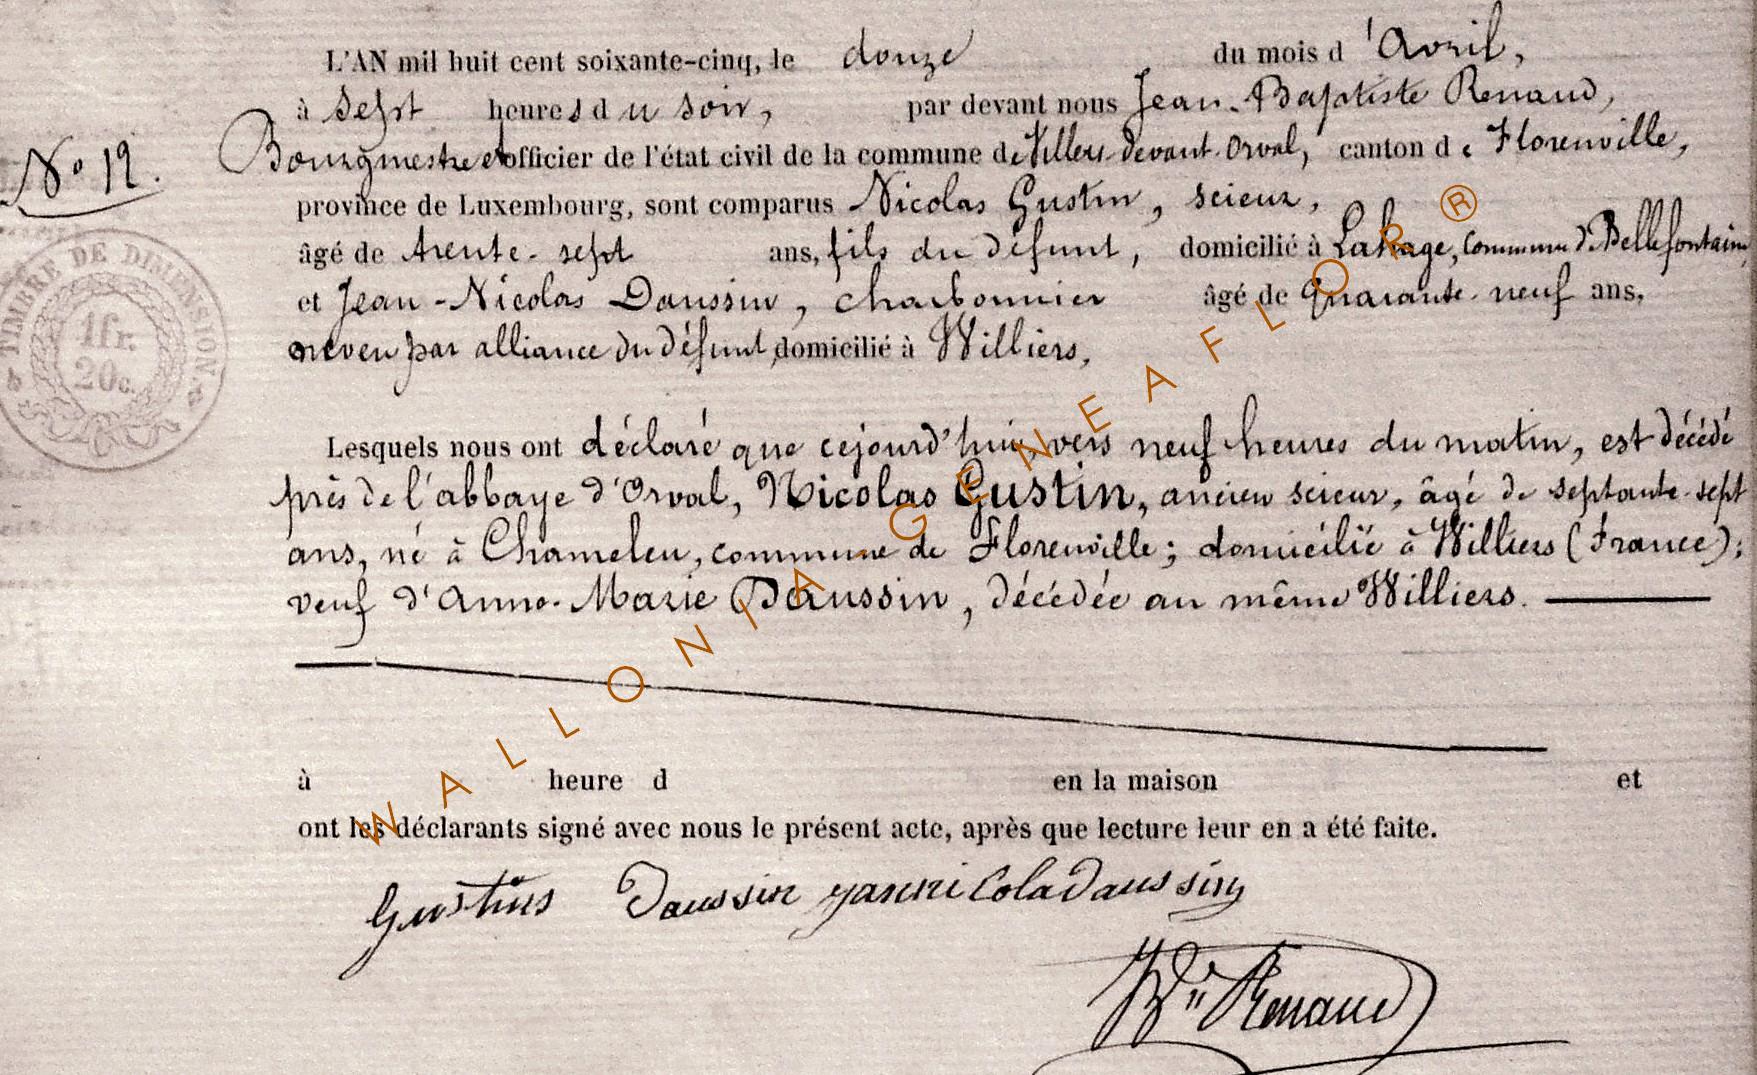 L'AN mil huit cent soixante-cinq, le douze du mois d'Avril,
à sept heures du soir, par devant nous Jean-Baptiste Renaud,
Bourgmestre et officier de l'état civil de la commune de Villers-devant-Orval, canton de Florenville,
N° 12.
province de Luxembourg, sont comparus Nicolas Gustin, scieur,
âgé de trente-sept ans, fils du défunt, domicilié à Lahage, commune de Bellefontaine,
et Jean-Nicolas Daussin, charbonnier âgé de Quarante-neuf ans,
neveu par alliance du défunt, domicilié à Williers,
TIMBRE DE DIMENSION.
1 fr.
20 c.
Lesquels nous ont déclaré que cejourd'hui, vers neuf heures du matin, est décédé
près de l'abbaye d'Orval, Nicolas Gustin, ancien scieur, âgé de septante-sept
ans, né à Chameleu, commune de Florenville; domicilié à Williers (France);
veuf d'Anne-Marie Daussin, décédée au même Williers.
à heure d en la maison et
ont les déclarants signé avec nous le présent acte, après que lecture leur en a été faite.
Gustin Daussin Daussin
Renaud
WALLONIA - GENEAFLOR ®